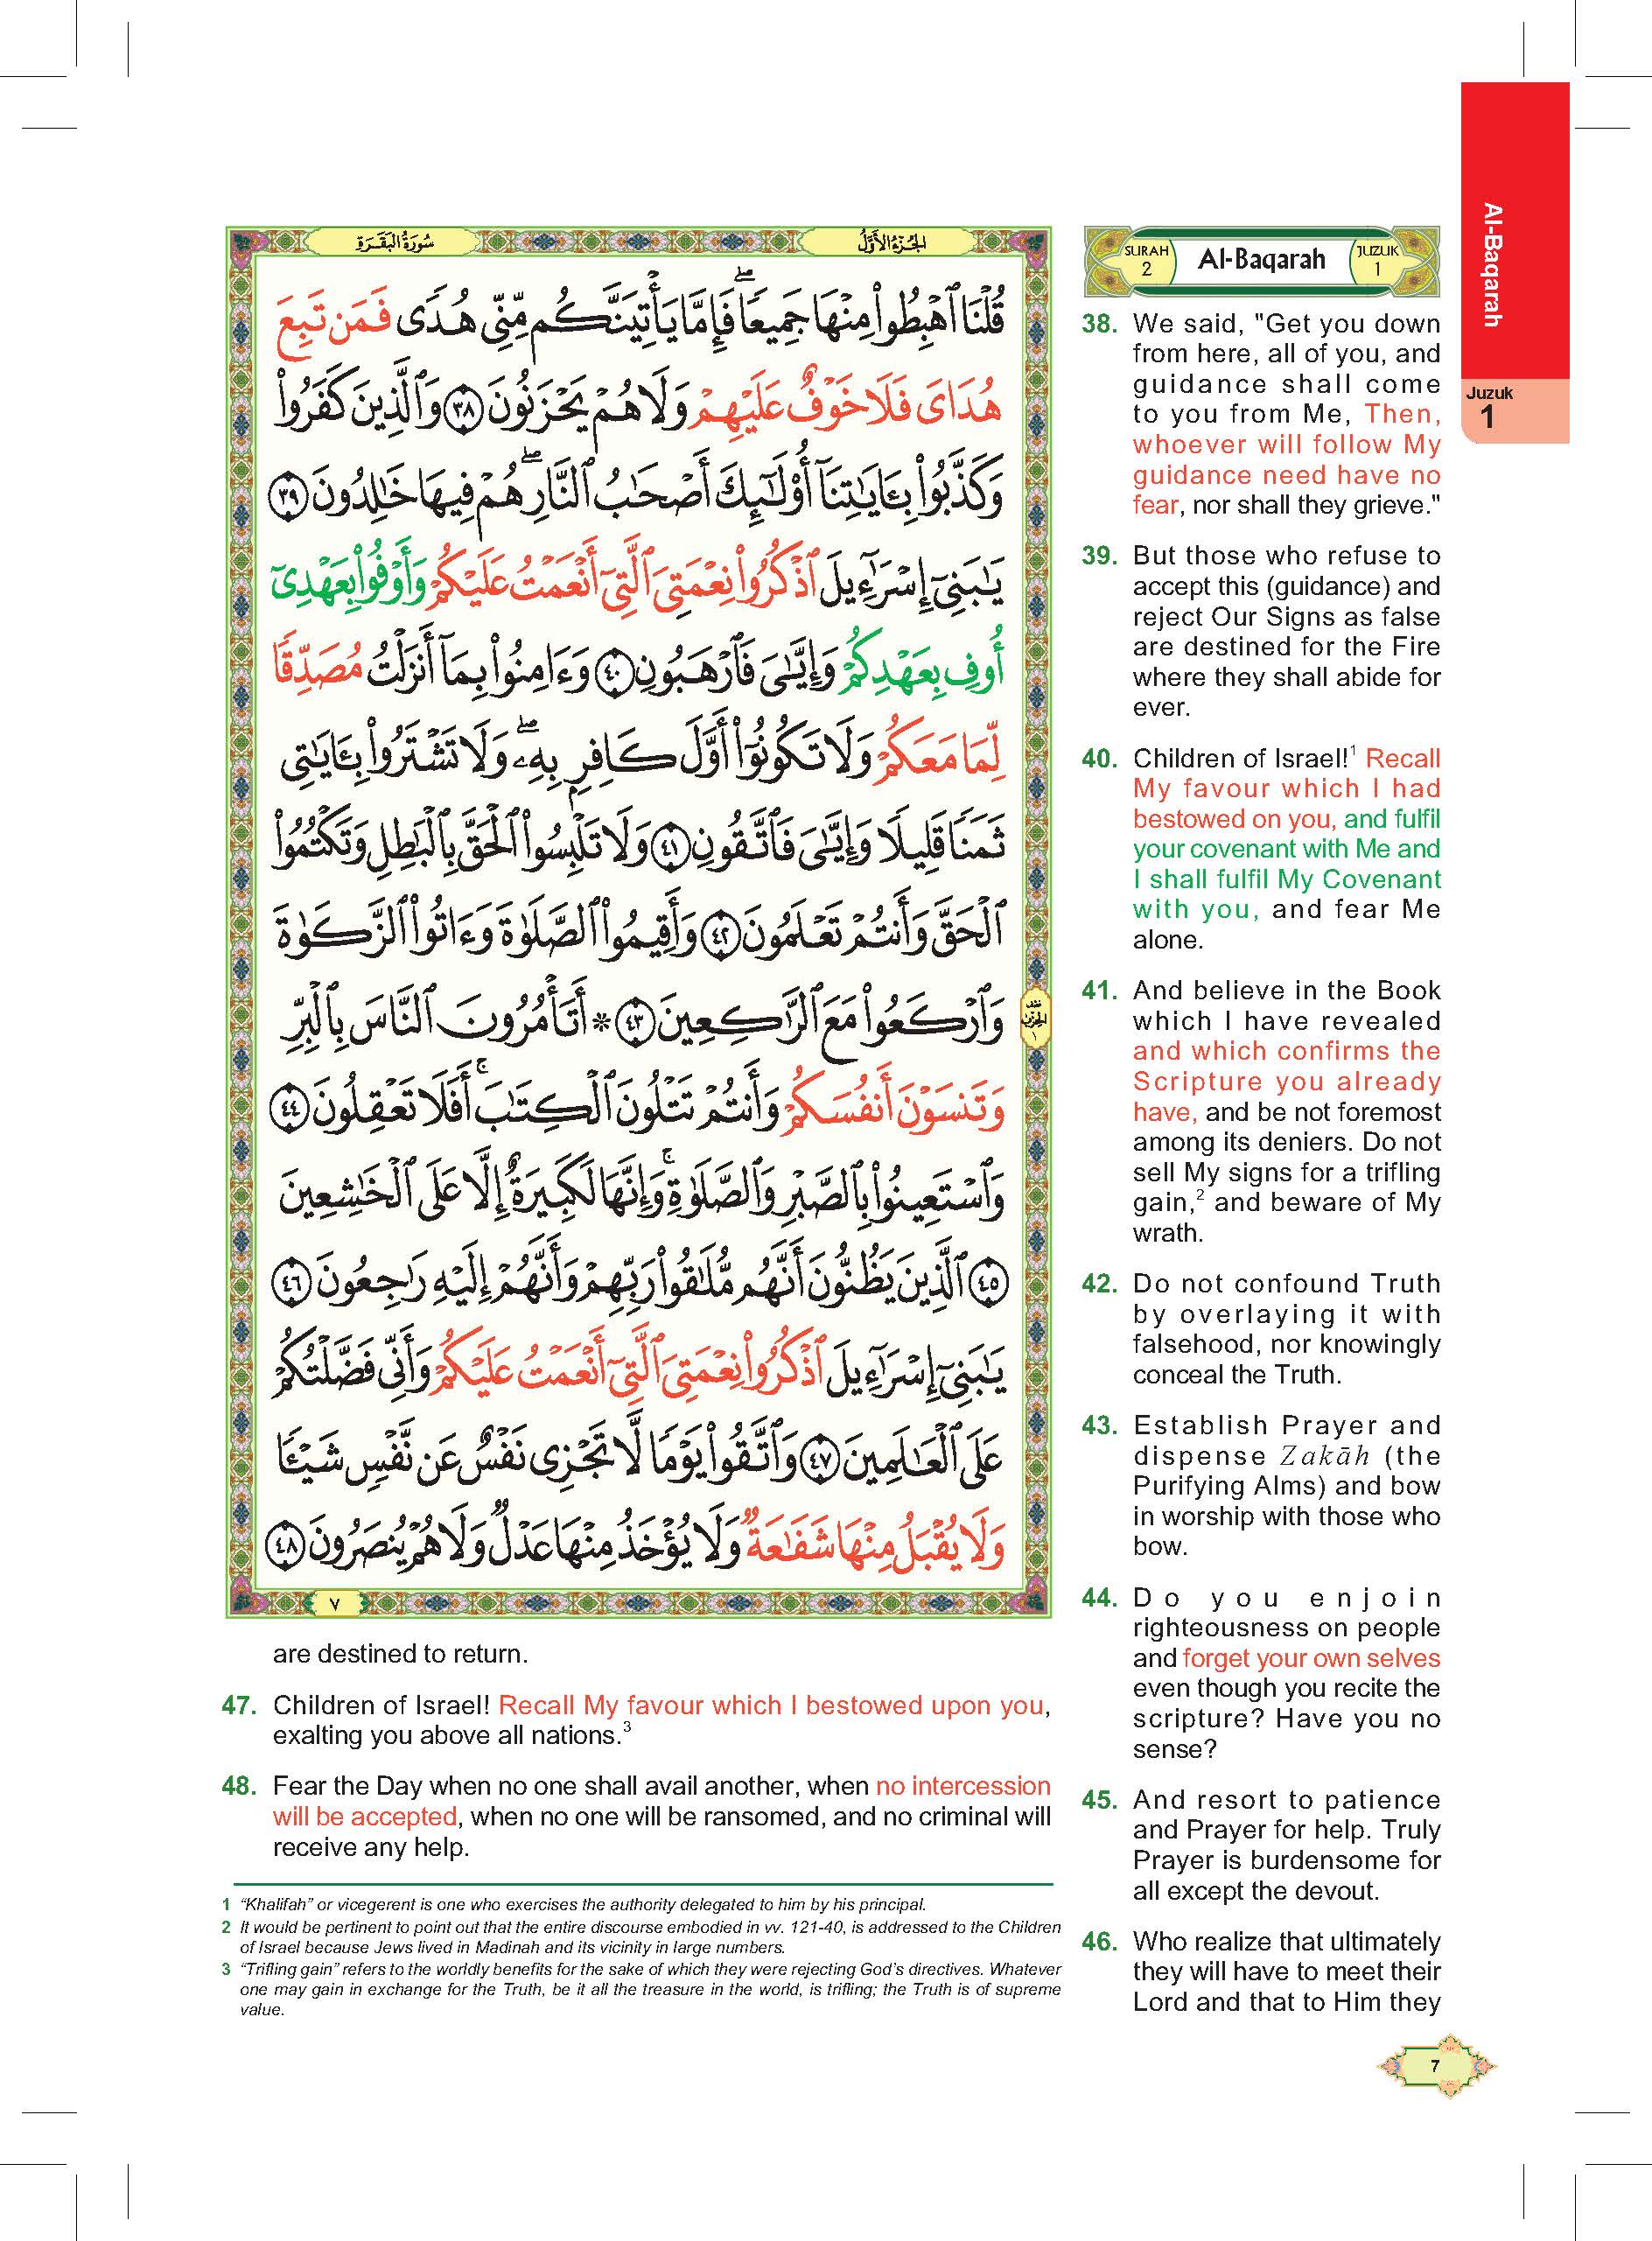 سُورَةُ البَقَرَةِ
الجُزْءُ الأَوَّلُ
قُلْنَا ٱهْبِطُوا۟ مِنْهَا جَمِيعًا ۖ فَإِمَّا يَأْتِيَنَّكُم مِّنِّى هُدًى فَمَن تَبِعَ
هُدَاىَ فَلَا خَوْفٌ عَلَيْهِمْ وَلَا هُمْ يَحْزَنُونَ ٣٨ وَٱلَّذِينَ كَفَرُوا۟
وَكَذَّبُوا۟ بِـَٔايَـٰتِنَآ أُو۟لَـٰٓئِكَ أَصْحَـٰبُ ٱلنَّارِ ۖ هُمْ فِيهَا خَـٰلِدُونَ ٣٩
يَـٰبَنِىٓ إِسْرَٰٓءِيلَ ٱذْكُرُوا۟ نِعْمَتِىَ ٱلَّتِىٓ أَنْعَمْتُ عَلَيْكُمْ وَأَوْفُوا۟ بِعَهْدِىٓ
أُوفِ بِعَهْدِكُمْ وَإِيَّـٰىَ فَٱرْهَبُونِ ٤٠ وَءَامِنُوا۟ بِمَآ أَنزَلْتُ مُصَدِّقًا
لِّمَا مَعَكُمْ وَلَا تَكُونُوٓا۟ أَوَّلَ كَافِرٍۭ بِهِۦ ۖ وَلَا تَشْتَرُوا۟ بِـَٔايَـٰتِى
ثَمَنًا قَلِيلًا وَإِيَّـٰىَ فَٱتَّقُونِ ٤١ وَلَا تَلْبِسُوا۟ ٱلْحَقَّ بِٱلْبَـٰطِلِ وَتَكْتُمُوا۟
ٱلْحَقَّ وَأَنتُمْ تَعْلَمُونَ ٤٢ وَأَقِيمُوا۟ ٱلصَّلَوٰةَ وَءَاتُوا۟ ٱلزَّكَوٰةَ
وَٱرْكَعُوا۟ مَعَ ٱلرَّٰكِعِينَ ٤٣ * أَتَأْمُرُونَ ٱلنَّاسَ بِٱلْبِرِّ
نصف
الحزب
١
وَتَنسَوْنَ أَنفُسَكُمْ وَأَنتُمْ تَتْلُونَ ٱلْكِتَـٰبَ ۚ أَفَلَا تَعْقِلُونَ ٤٤
وَٱسْتَعِينُوا۟ بِٱلصَّبْرِ وَٱلصَّلَوٰةِ ۚ وَإِنَّهَا لَكَبِيرَةٌ إِلَّا عَلَى ٱلْخَـٰشِعِينَ
٤٥ ٱلَّذِينَ يَظُنُّونَ أَنَّهُم مُّلَـٰقُوا۟ رَبِّهِمْ وَأَنَّهُمْ إِلَيْهِ رَٰجِعُونَ ٤٦
يَـٰبَنِىٓ إِسْرَٰٓءِيلَ ٱذْكُرُوا۟ نِعْمَتِىَ ٱلَّتِىٓ أَنْعَمْتُ عَلَيْكُمْ وَأَنِّى فَضَّلْتُكُمْ
عَلَى ٱلْعَـٰلَمِينَ ٤٧ وَٱتَّقُوا۟ يَوْمًا لَّا تَجْزِى نَفْسٌ عَن نَّفْسٍ شَيْـًٔا
وَلَا يُقْبَلُ مِنْهَا شَفَـٰعَةٌ وَلَا يُؤْخَذُ مِنْهَا عَدْلٌ وَلَا هُمْ يُنصَرُونَ ٤٨
٧
SURAH
2
Al-Baqarah
JUZUK
1
Al-Baqarah
Juzuk
1
38. We said, "Get you down
from here, all of you, and
guidance shall come
to you from Me, Then,
whoever will follow My
guidance need have no
fear, nor shall they grieve."
39. But those who refuse to
accept this (guidance) and
reject Our Signs as false
are destined for the Fire
where they shall abide for
ever.
40. Children of Israel!1 Recall
My favour which I had
bestowed on you, and fulfil
your covenant with Me and
I shall fulfil My Covenant
with you, and fear Me
alone.
41. And believe in the Book
which I have revealed
and which confirms the
Scripture you already
have, and be not foremost
among its deniers. Do not
sell My signs for a trifling
gain,2 and beware of My
wrath.
42. Do not confound Truth
by overlaying it with
falsehood, nor knowingly
conceal the Truth.
43. Establish Prayer and
dispense Zakāh (the
Purifying Alms) and bow
in worship with those who
bow.
44. Do you enjoin
righteousness on people
and forget your own selves
even though you recite the
scripture? Have you no
sense?
45. And resort to patience
and Prayer for help. Truly
Prayer is burdensome for
all except the devout.
46. Who realize that ultimately
they will have to meet their
Lord and that to Him they
are destined to return.
47. Children of Israel! Recall My favour which I bestowed upon you,
exalting you above all nations.3
48. Fear the Day when no one shall avail another, when no intercession
will be accepted, when no one will be ransomed, and no criminal will
receive any help.
1 “Khalifah” or vicegerent is one who exercises the authority delegated to him by his principal.
2 It would be pertinent to point out that the entire discourse embodied in vv. 121-40, is addressed to the Children
of Israel because Jews lived in Madinah and its vicinity in large numbers.
3 “Trifling gain” refers to the worldly benefits for the sake of which they were rejecting God’s directives. Whatever
one may gain in exchange for the Truth, be it all the treasure in the world, is trifling; the Truth is of supreme
value.
7